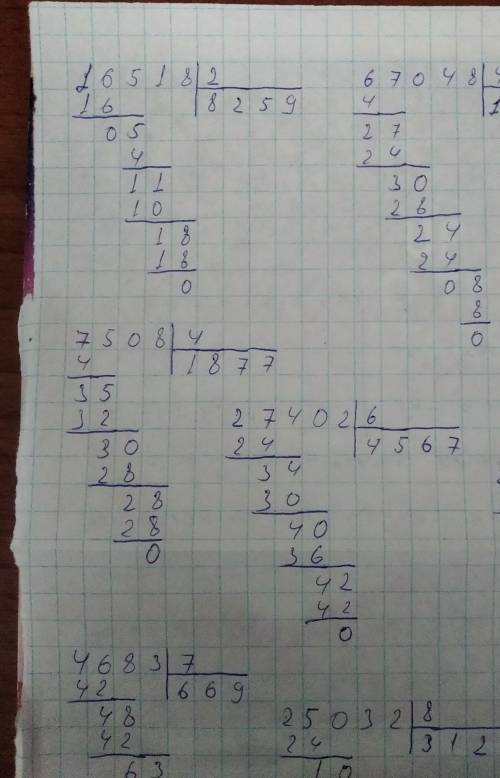 16518 2
16 8259
05
4
11
10
18
18
0
67048 4
4 1
27
24
30
28
24
24
08
8
0
7508 4
4 1877
35
32
30
28
28
28
0
27402 6
24 4567
34
30
40
36
42
42
0
4683 7
42 669
48
42
63
25032 8
24 312
10